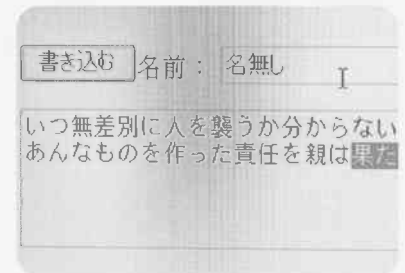 書き込む 名前： 名無し
いつ無差別に人を襲うか分からない
あんなものを作った責任を親は果た